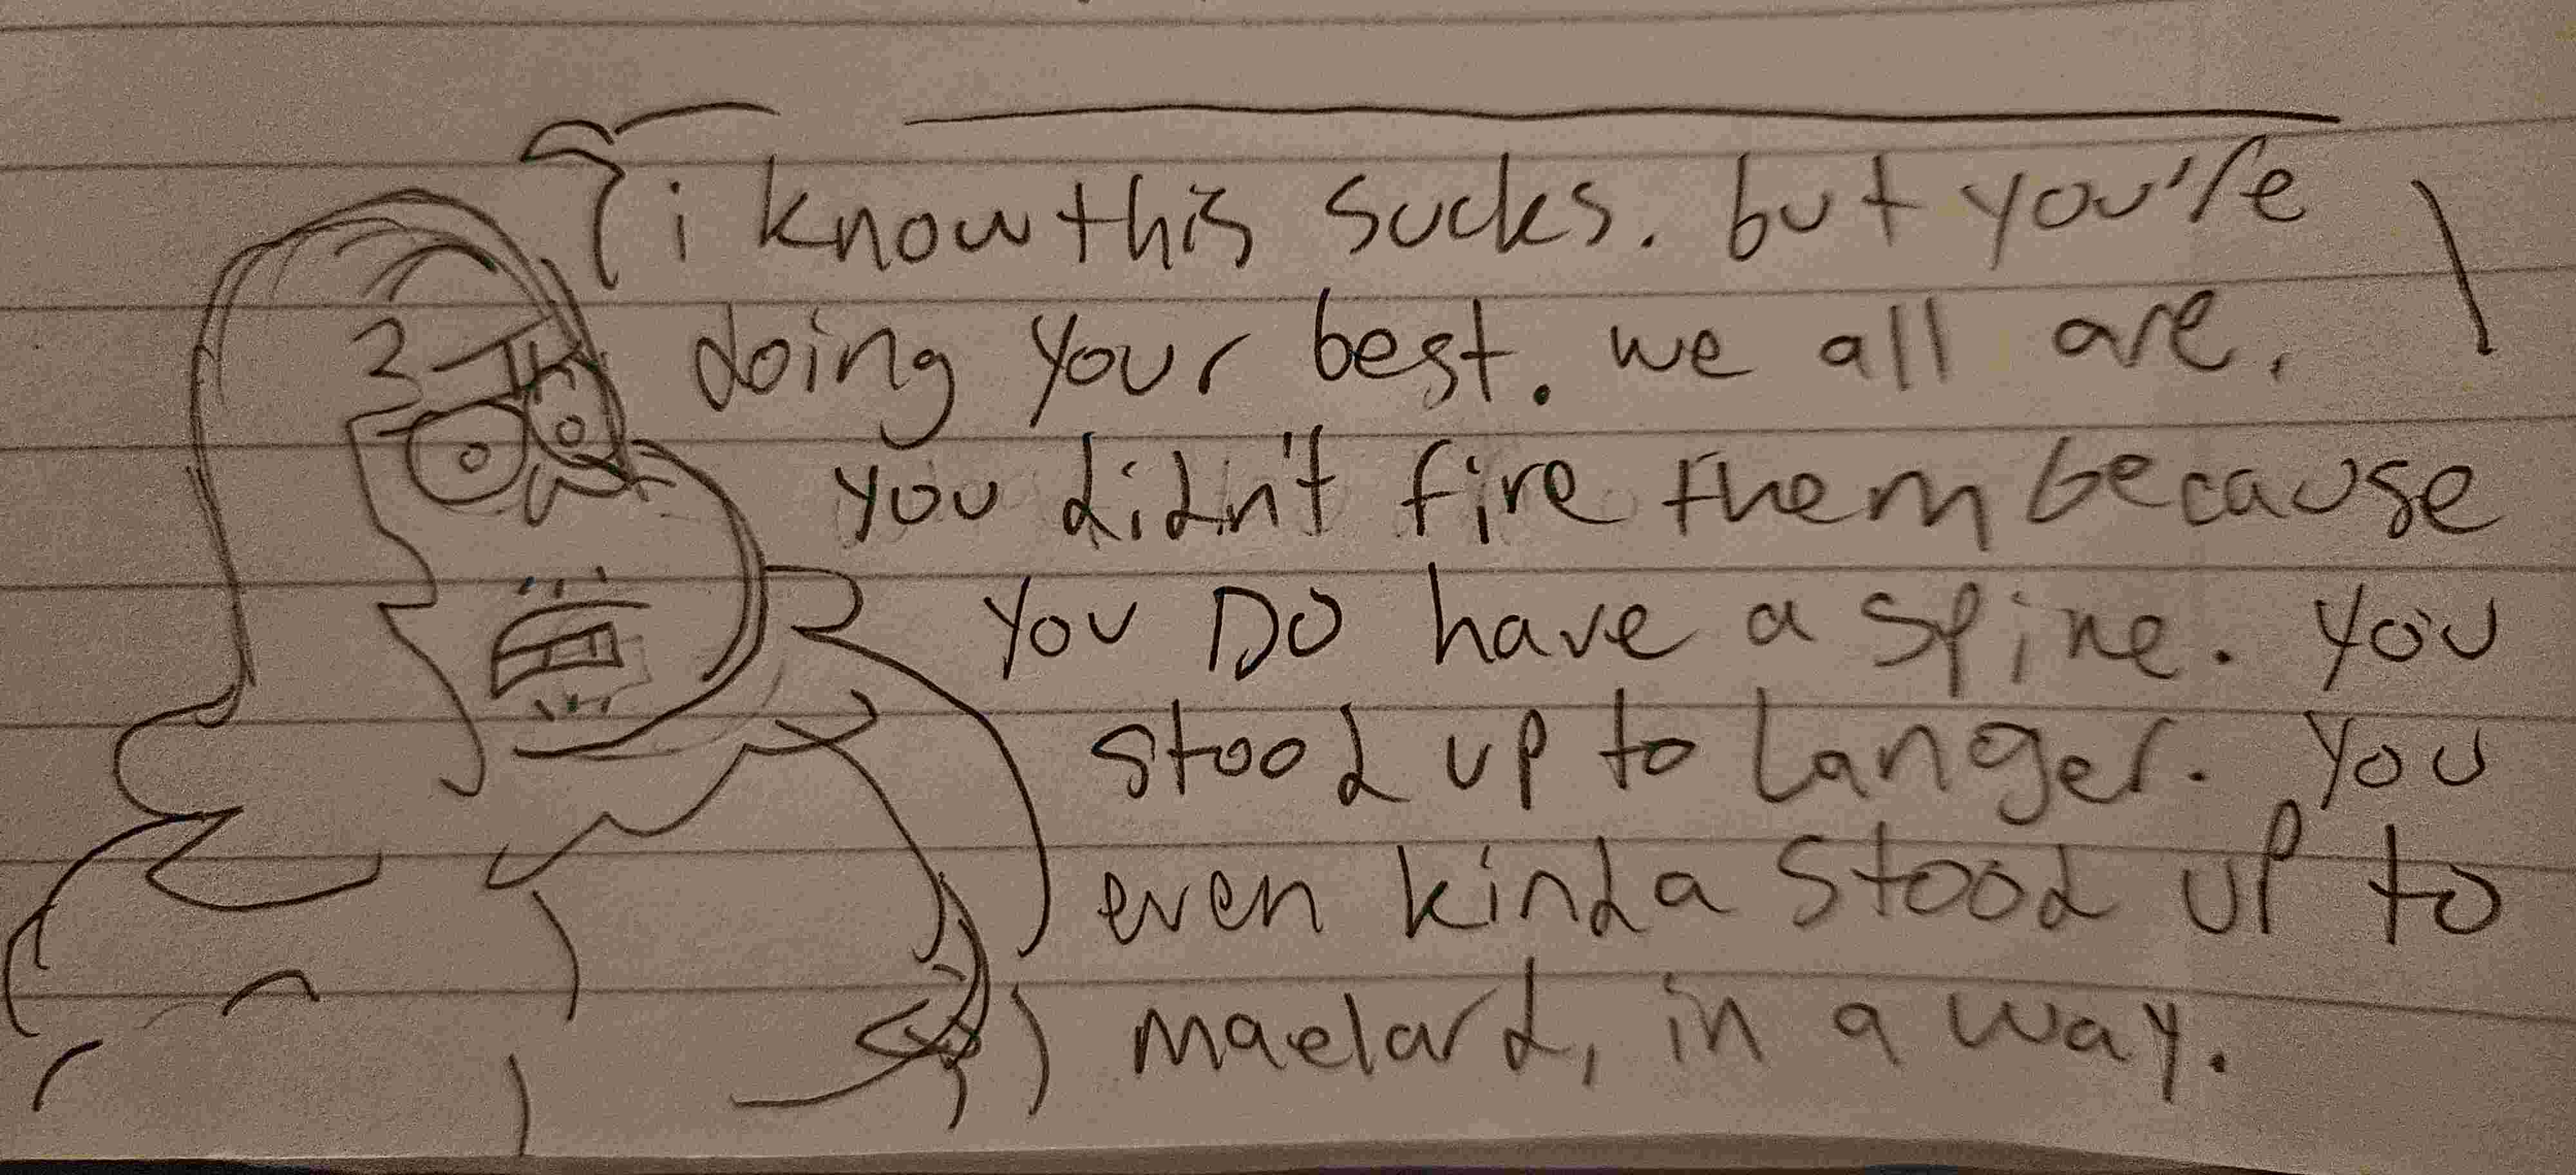 i know this sucks. but you're
doing your best. we all are.
you didn't fire them because
you DO have a spine. you
stood up to Langer. you
even kinda stood up to
maelard, in a way.